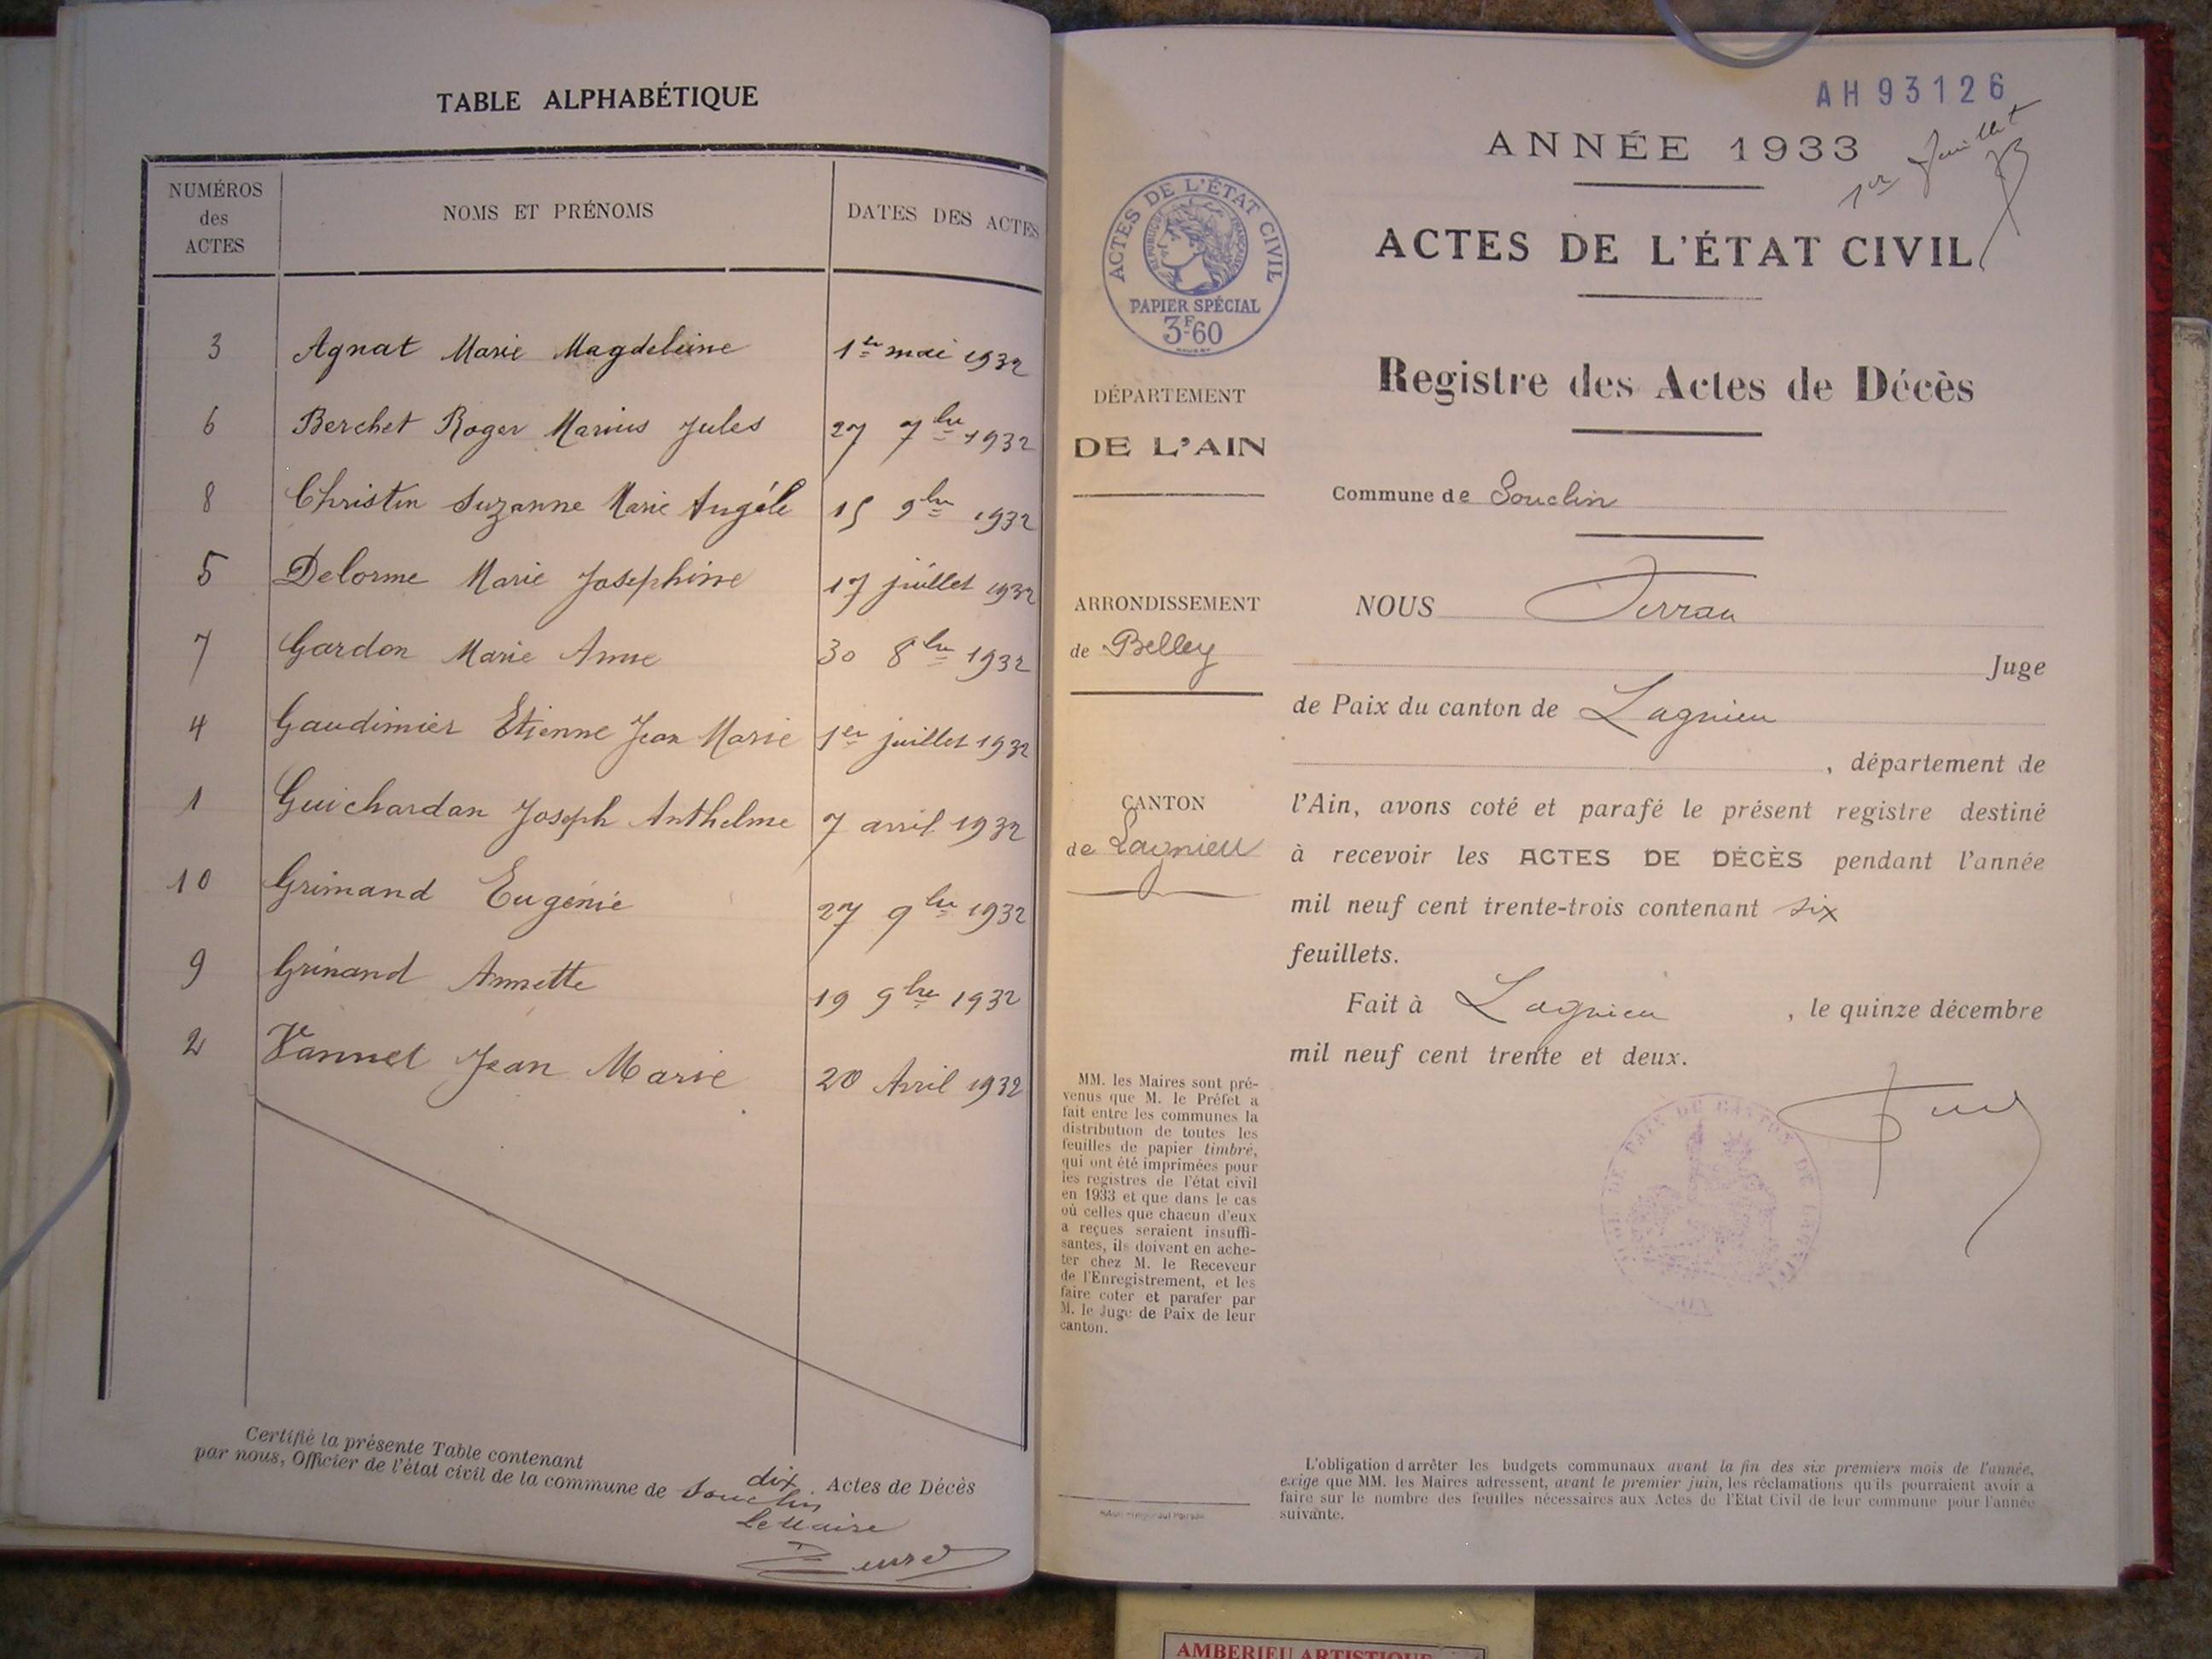 TABLE ALPHABÉTIQUE
NUMÉROS des ACTES NOMS ET PRÉNOMS DATES DES ACTES
3 Agnat Marie Magdeleine 1er mai 1932
6 Berchet Roger Marius Jules 27 7bre 1932
8 Christin Suzanne Marie Angéle 15 9bre 1932
5 Delorme Marie Josephine 17 juillet 1932
7 Gardon Marie Anne 30 8bre 1932
4 Gaudimier Etienne Jean Marie 1er juillet 1932
1 Guichardan Joseph Anthelme 7 avril 1932
10 Grimand Eugénie 27 9bre 1932
9 Grinand Annette 19 9bre 1932
2 Vannet Jean Marie 20 Avril 1932
Certifié la présente Table contenant dix Actes de Décès
par nous, Officier de l'état civil de la commune de Souclin
Le Maire
AH93126
ANNÉE 1933
1er Juillet
ACTES DE L'ÉTAT CIVIL
ACTES DE L'ÉTAT CIVIL
RÉPUBLIQUE FRANÇAISE
PAPIER SPÉCIAL
3F60
Registre des Actes de Décès
DÉPARTEMENT
DE L'AIN
Commune de Souclin
ARRONDISSEMENT
de Belley
CANTON
de Lagnieu
NOUS
Juge
de Paix du canton de Lagnieu
, département de
l'Ain, avons coté et parafé le présent registre destiné
à recevoir les ACTES DE DÉCÈS pendant l'année
mil neuf cent trente-trois contenant six
feuillets.
Fait à Lagnieu , le quinze décembre
mil neuf cent trente et deux.
MM. les Maires sont pré-
venus que M. le Préfet a
fait entre les communes la
distribution de toutes les
feuilles de papier timbré,
qui ont été imprimées pour
les registres de l'état civil
en 1933 et que dans le cas
où celles que chacun d'eux
a reçues seraient insuffi-
santes, ils doivent en ache-
ter chez M. le Receveur
de l'Enregistrement, et les
faire coter et parafer par
M. le Juge de Paix de leur
canton.
L'obligation d'arrêter les budgets communaux avant la fin des six premiers mois de l'année,
exige que MM. les Maires adressent, avant le premier juin, les réclamations qu'ils pourraient avoir à
faire sur le nombre des feuilles nécessaires aux Actes de l'Etat Civil de leur commune pour l'année
suivante.
AMBERIEU ARTISTIQUE